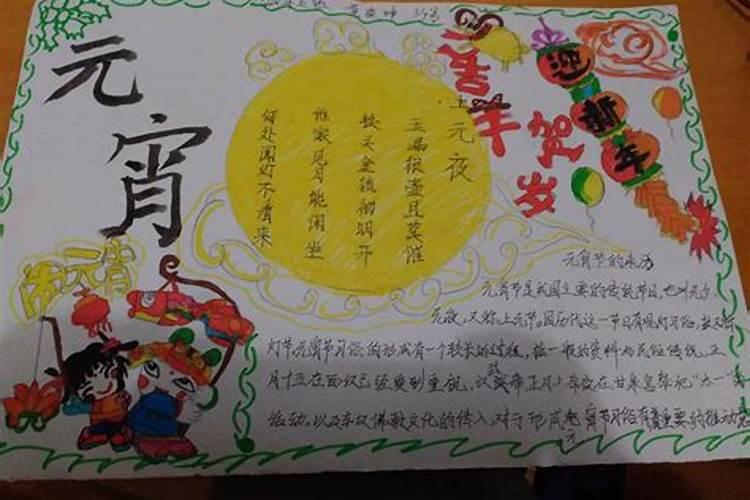 元宵
上元夜
玉漏银壶且莫催
铁关金锁彻明开
谁家见月能闲坐
何处闻灯不看来
喜羊
贺岁
迎新年
闹元宵
元宵节的来历
元宵节是我国主要的传统节日，也叫元夕、
元夜，又称上元节。因历代这一节日有观灯习俗，故又称
灯节。元宵节习俗的形成有一个较长的过程，据一般的资料与民俗传说，正
月十五在西汉已经受到重视，汉武帝正月上辛夜在甘泉宫祭祀“太一”
活动。以及东汉佛教文化的传入，对于形成元宵节习俗有着重要的推动意